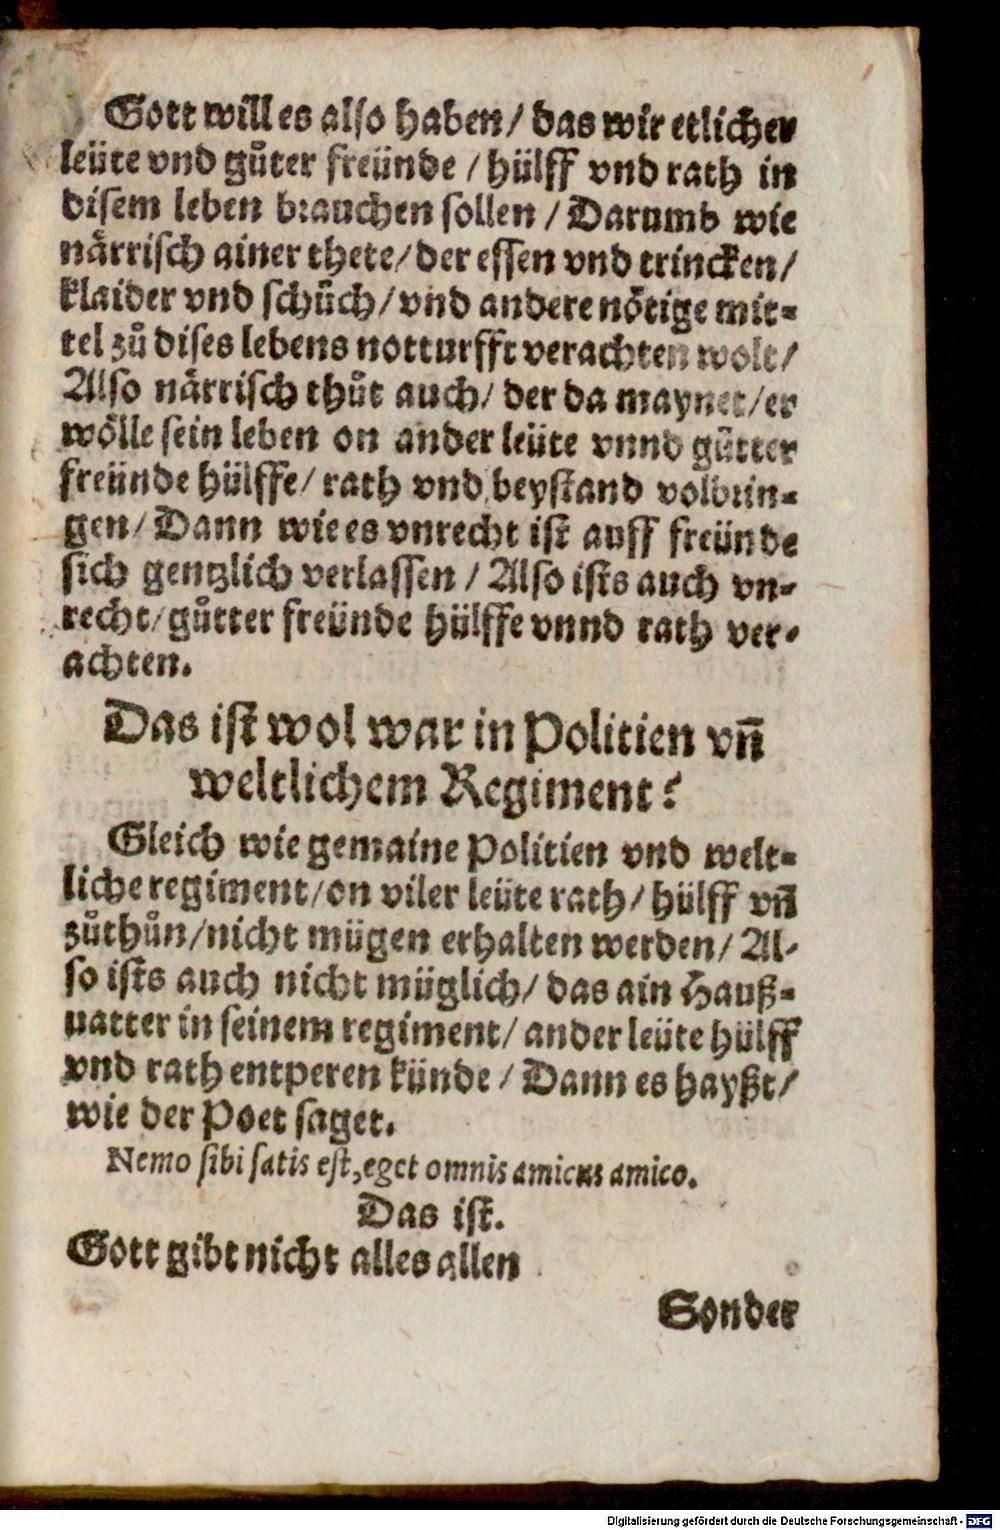 Gott will es also haben / das wir etlicher
leüte vnd gůter freünde / hülff vnd rath in
disem leben brauchen sollen / Darumb wie
närrisch ainer thete / der essen vnd trincken /
klaider vnd schůch / vnd andere nötige mit-
tel zů dises lebens notturfft verachten wolt /
Also närrisch thůt auch / der da maynet / er
wölle sein leben on ander leüte vnnd gůtter
freünde hülffe / rath vnd beystand volbrin-
gen / Dann wie es vnrecht ist auff freünde
sich gentzlich verlassen / Also ists auch vn-
recht / gůtter freünde hülffe vnnd rath ver-
achten.
Das ist wol war in Politien vñ
weltlichem Regiment?
Gleich wie gemaine Politien vnd welt-
liche regiment / on viler leüte rath / hülff vñ
zůthůn / nicht mügen erhalten werden / Al-
so ists auch nicht müglich / das ain Hauß-
uatter in seinem regiment / ander leüte hülff
vnd rath entperen künde / Dann es hayßt /
wie der Poet saget.
Nemo sibi satis est, eget omnis amicus amico.
Das ist.
Gott gibt nicht alles allen
Sonder
Digitalisierung gefördert durch die Deutsche Forschungsgemeinschaft - DFG